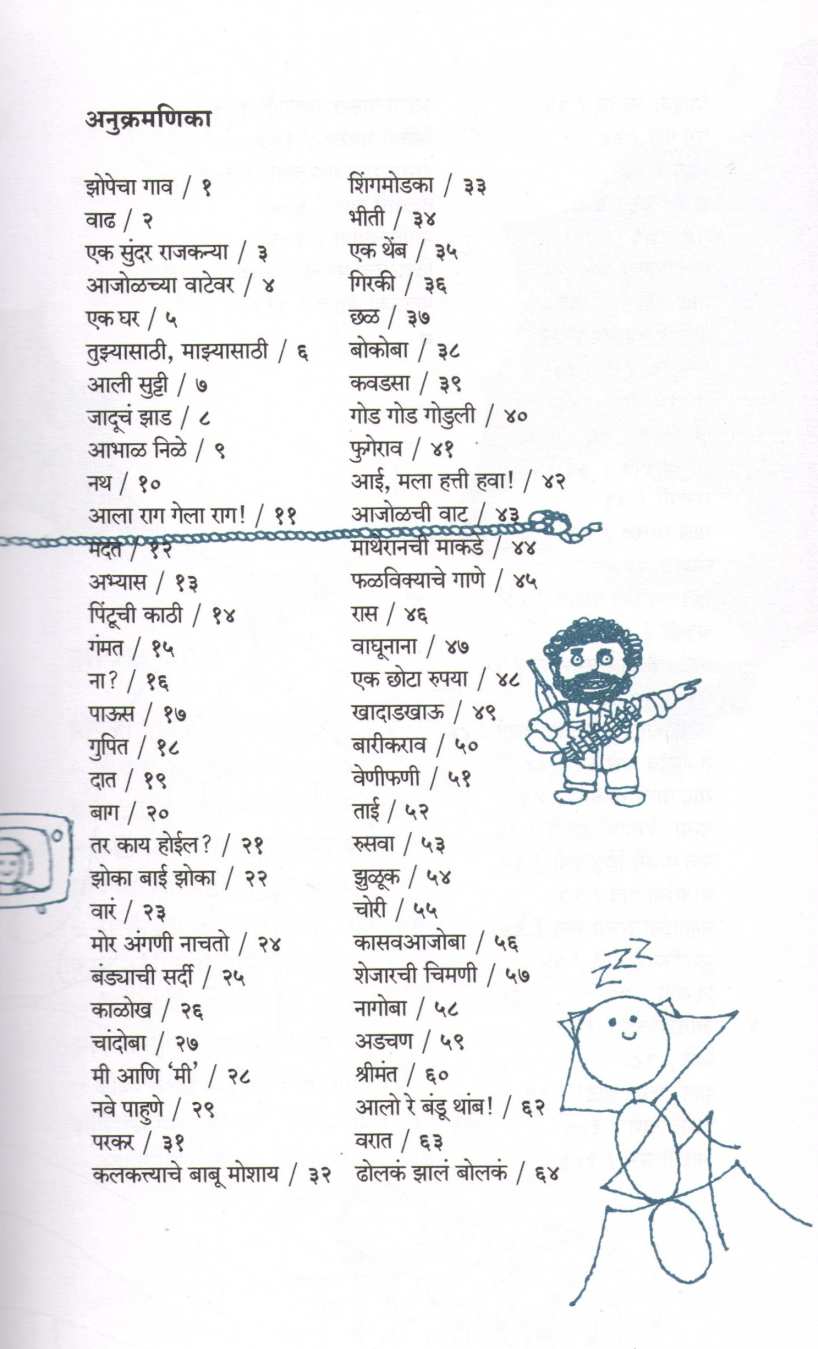 अनुक्रमणिका
झोपेचा गाव / १
वाढ / २
एक सुंदर राजकन्या / ३
आजोळच्या वाटेवर / ४
एक घर / ५
तुझ्यासाठी, माझ्यासाठी / ६
आली सुट्टी / ७
जादूचं झाड / ८
आभाळ निळे / ९
नथ / १०
आला राग गेला राग! / ११
मदत / १२
अभ्यास / १३
पिंटूची काठी / १४
गंमत / १५
ना? / १६
पाऊस / १७
गुपित / १८
दात / १९
बाग / २०
तर काय होईल? / २१
झोका बाई झोका / २२
वारं / २३
मोर अंगणी नाचतो / २४
बंड्याची सर्दी / २५
काळोख / २६
चांदोबा / २७
मी आणि ‘मी’ / २८
नवे पाहुणे / २९
परकर / ३१
कलकत्त्याचे बाबू मोशाय / ३२
शिंगमोडका / ३३
भीती / ३४
एक थेंब / ३५
गिरकी / ३६
छळ / ३७
बोकोबा / ३८
कवडसा / ३९
गोड गोड गोडुली / ४०
फुगेराव / ४१
आई, मला हत्ती हवा! / ४२
आजोळची वाट / ४३
माथेरानची माकडे / ४४
फळविक्याचे गाणे / ४५
रास / ४६
वाघूनाना / ४७
एक छोटा रुपया / ४८
खादाडखाऊ / ४९
बारीकराव / ५०
वेणीफणी / ५१
ताई / ५२
रुसवा / ५३
झुळूक / ५४
चोरी / ५५
कासवआजोबा / ५६
शेजारची चिमणी / ५७
नागोबा / ५८
अडचण / ५९
श्रीमंत / ६०
आलो रे बंडू थांब! / ६२
वरात / ६३
ढोलकं झालं बोलकं / ६४
zzz